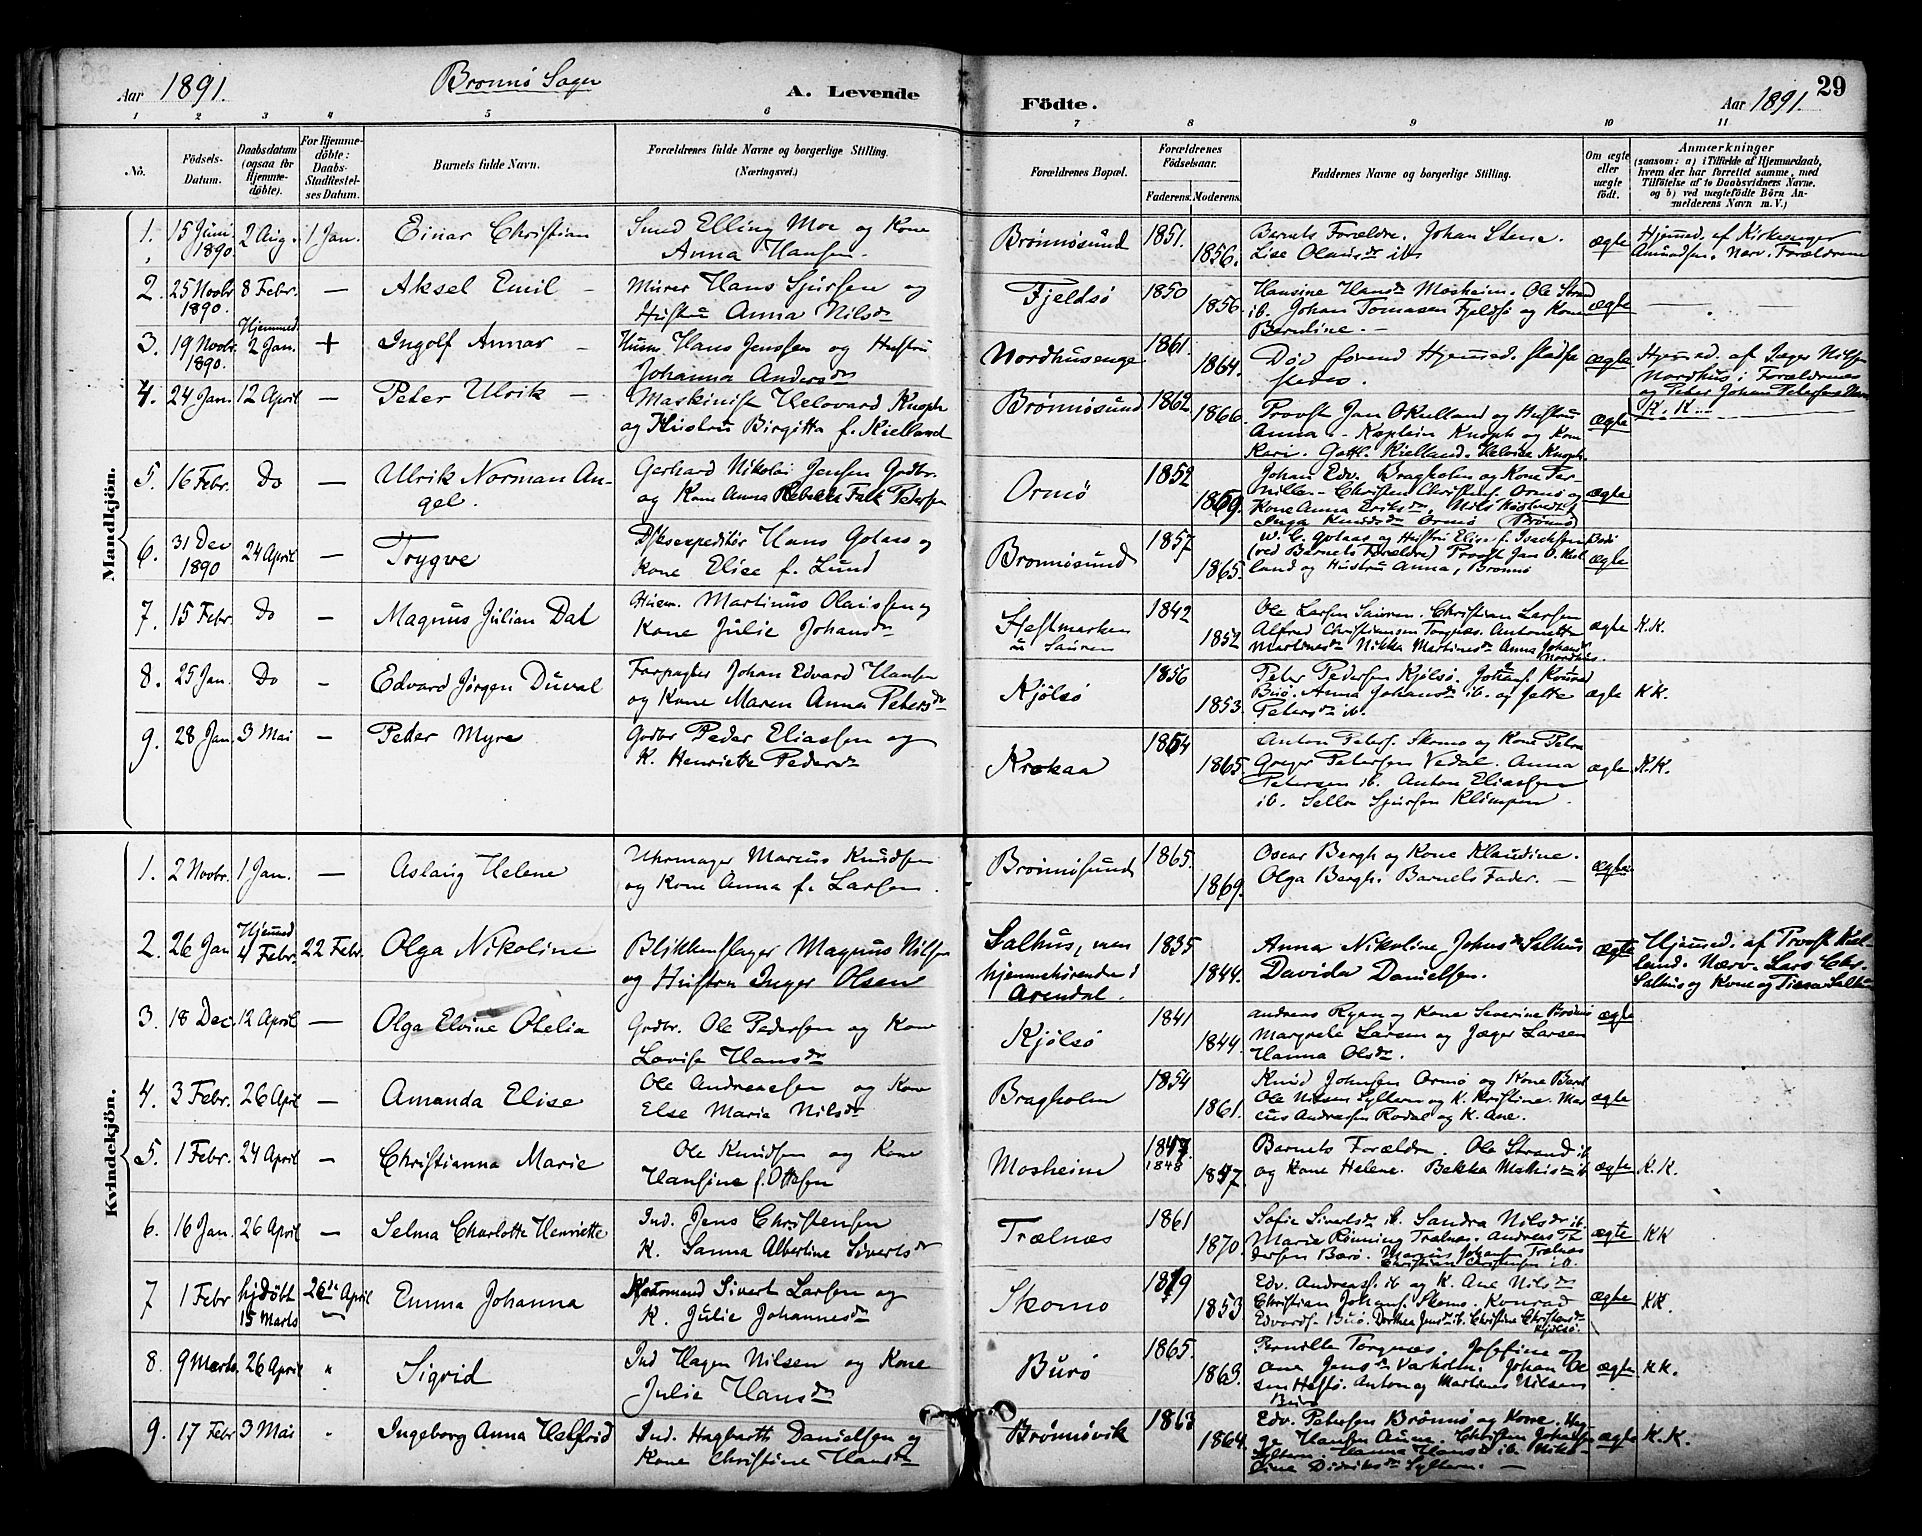 Aar 1891. Brønnø Sogn A. Levende Födte. Aar 1891. 29
1 2 3 4 5 6 7 8 9 10 11
No. Födsels-Datum. Daabsdatum (ogsaa for Hjemme-döbte). For Hjemme-döbte: Daabs-Stadfæstel-ses Datum. Barnets fulde Navn. Forældrenes fulde Navne og borgerlige Stilling. (Næringsvei.) Forældrenes Bopæl. Forældrenes Födselsaar. Faderens. Moderens. Faddernes Navne og borgerlige Stilling. Om ægte eller uægte födt. Anmærkninger (saasom: a) i Tilfælde af Hjemmedaab, hvem der har forrettet samme, med Tilföielse af to Daabsvidners Navne, og b) ved uægtefödte Börn An-melderens Navn m. V.)
Mandkjön.
1. 15 Juni 1890 2 Aug. 1 Jan. Einar Christian
Elling Moe og Kone
Anna Hansen.
Brønnøsund 1851. 1856.
Barnets Forældre. Johan Stene.
Lise Olausdr ib
ægte
Hjemmed. af Kirkesanger
Amundsen. Nærv. Forældrene
2. 25 Novbr 1890. 8 Febr. — Aksel Emil —
Murer Hans Sjursen og
Hustru Anna Nilsdr
Fjeldsø 1850 1856.
Hansine Hansdr Mosheim. Ole Strand
ib. Johan Tomasen Fjeldsø og Kone
Berntine. —
ægte —
3. 19 Novbr. 1890. Hjemmed. 2 Jan. + Ingolf Annar —
Husm. Hans Jenssen og Hustru
Johanna Andersdr
Nordhusenge 1861. 1864.
Død førend Hjemmed. stadfæ
stedes.
ægte
Hjemmed. af Jæger Nilsen
Nordhus; Forældrene
og Peter Johan Petersen
4. 24 Jan. 12 April — Peter Ulrik —
Maskinist Helovard Knoph
og Hustru Birgitta f. Kielland
Brønnøsund 1862 1866.
Provst Jan O Kielland og Hustru
Anna. Kaptein Knoph og Kone
Kari. Gottl. Kielland. Helvine Knoph.
ægte K. K.
5. 16 Febr. Do — Ulrik Norman An-
gel.
Gerhard Nikolai Jensen Godbr.
og Kone Anna Rebekka Falk Pedersen
Ormø 1852 1859.
Johan Edv. Bragholm og Kone Per
nille — Christen Christens. Ormø og
Kone Anna Eriksdr, Nils
Inga Knudsdr Ormø (Brønnø)
ægte
6. 31 Dec 1890 24 April — Trygve
Dskexpeditør Hans Gotaas og
Kone Elise f. Lund
Brønnøsund 1857 1865.
W. C. Gotaas og Hustru Elise f. Isachsen Bodø
(ved Barnets Forældre) Provst Jan O. Kiel
land og Hustru Anna, Brønnø
ægte
7. 15 Febr. Do — Magnus Julian Dal
Husm. Martinus Olaussen og
Kone Julie Johansdr
Hestmarken
u Sauren
1842 1852
Ole Larsen Sauren. Christian Larsen
Alfred Christiansen Torgnæs. Antonette
Martinesdr Nikka Martinesdr Anna Johansdr
Nordhus.
ægte K.K.
8. 25 Jan. Do — Edvard Jørgen Duval
Forpagter Johan Edvard Hansen
og Kone Maren Anna Petersdr
Kjølsø 1856 1853.
Peter Pedersen Kjølsø. Johans. Konrad
Burø. Anna Johansdr ib. og Jette
Petersdr ib.
ægte KK.
9. 28 Jan. 3 Mai — Peder Myre —
Godbr Peder Eliassen og
K. Henriette Pedersdr
Krokaa 1854 1865
Anton Peters. Skomo og Kone Petra
Greger Petersen Vedal. Anna
Petersen ib. Anton Eliassen
ib. Sella Sjursen Klimpen.
ægte K.K.
Kvindekjön.
1. 2 Novbr. 1 Jan. — Aslaug Helene
Uhrmager Marcus Knudsen
og Kone Anna f. Larsen.
Brønnøsund 1865. 1869.
Oscar Bergh og Kone Klaudine.
Olga Bergh. Barnets Fader. —
ægte.
2. 26 Jan Hjemmed 4 Febr. 22 Febr. Olga Nikoline
Blikkenslager Magnus Nilsen
og Hustru Inger Olsen
Salhus, men
hjemmehørende i
Arendal.
1835 1844.
Anna Nikoline Johnsdr Salhus
Davida Danielsen.
ægte
Hjemmed. af Provst Kiel
land. Nærv. Lars Chr.
Salhus og Kone og Salhus
3. 18 Dec. 12 April — Olga Elvine Otelia
Grdbr. Ole Pedersen og Kone
Lovise Hansdr
Kjølsø 1841 1844.
Andreas Ryan og Kone Severine Brønnø
Margrete Larsen og Jæger Larsen
Hanna Olsdr.
ægte
4. 3 Febr. 26 April — Amanda Elise
Ole Andreassen og Kone
Else Maria Nilsdr
Bragholm 1854 1861.
Knud Johnsen Ormø og Kone Berit
Ole Nilsen Syltern og K. Kristine. Mar
cus Andreasen Rodal og K. Ane.
ægte
5. 1 Febr. 24 April — Christianna Marie
Ole Knudsen og Kone
Hansine f. Ottesen
Mosheim 1847. 1848 1847.
Barnets Forældre. Ole Strand ib.
og Kone Helene. Bekka Mathisdr ib.
ægte K.K.
6. 16 Jan. 26 April — Selma Charlotte Henriette
Ind. Jens Christensen
K. Sanna Albertine Sivertsdr
Trælnæs 1861 1870.
Sofie Sivertsdr ib. Sandra Nilsdr ib.
Marie Rønning Trælnæs. Andreas Th
dersen Bærø. Marcus Johansen Trælnæs
Christian Christensen ib.
ægte KK
7 1 Febr hjdøbt 15 Marts 26de April Emma Johanna
Sivert Larsen og
K. Julie Johannesdr
Skomo 1853
Edv. Andreass. ib og K. Ane Nilsdr
Christian Johans. Skomo. Konrad
Edvards. Burø. Dorthea Jensdr ib. Christine Christensdr
Kjølsø.
ægte KK.
8. 9 Marts. 26 April " Sigrid
Ind Hagen Nilsen og Kone
Julie Hansdr
Burø 1865. 1863.
Pernille Torgnæs. Josefine og
Ane Jensdr Varholm. Johan Ol
sen Hestø. Anton og Martines Nilsens
Burø
ægte KK.
9. 17 Febr 3 Mai " Ingeborg Anna Helfrid
Ind. Hagbarth Danielsen og
Kone Christine Hansdr
Brønnøvik 1863 1864.
Edv. Petersen Brønnø og Kone. Haa
ge Hansen Aune. Christen Johansen
Syltern. Hanna Hansdr ib. Niko
line Didriksdr Syltern. —
ægte K.K.